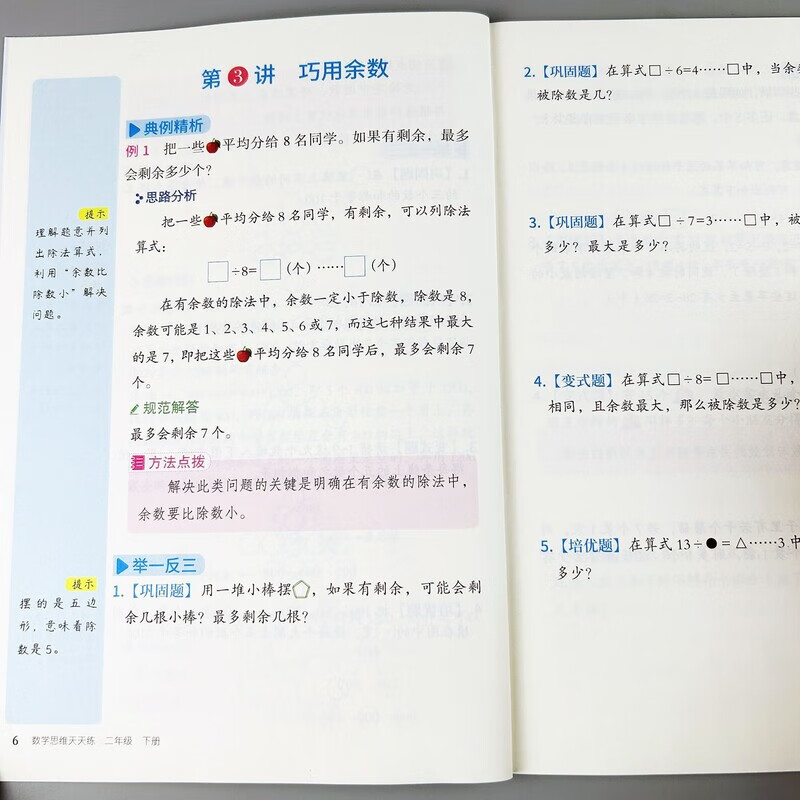 第3讲 巧用余数
典例精析
例1 把一些平均分给8名同学。如果有剩余，最多
会剩余多少个？
思路分析
把一些平均分给8名同学，有剩余，可以列除法
算式：
□÷8=□（个）……□（个）
在有余数的除法中，余数一定小于除数，除数是8，
余数可能是1、2、3、4、5、6或7，而这七种结果中最大
的是7，即把这些平均分给8名同学后，最多会剩余7
个。
规范解答
最多会剩余7个。
方法点拨
解决此类问题的关键是明确在有余数的除法中，
余数要比除数小。
举一反三
1.【巩固题】用一堆小棒摆，如果有剩余，可能会剩
余几根小棒？最多剩余几根？
提示
理解题意并列
出除法算式，
利用“余数比
除数小”解决
问题。
提示
摆的是五边
形，意味着除
数是5。
6 数学思维天天练 二年级 下册
2.【巩固题】在算式□÷6=4……□中，当余数
被除数是几？
3.【巩固题】在算式□÷7=3……□中，被
多少？最大是多少？
4.【变式题】在算式□÷8=□……□中，
相同，且余数最大，那么被除数是多少？
5.【培优题】在算式13÷●=△……3中
多少？